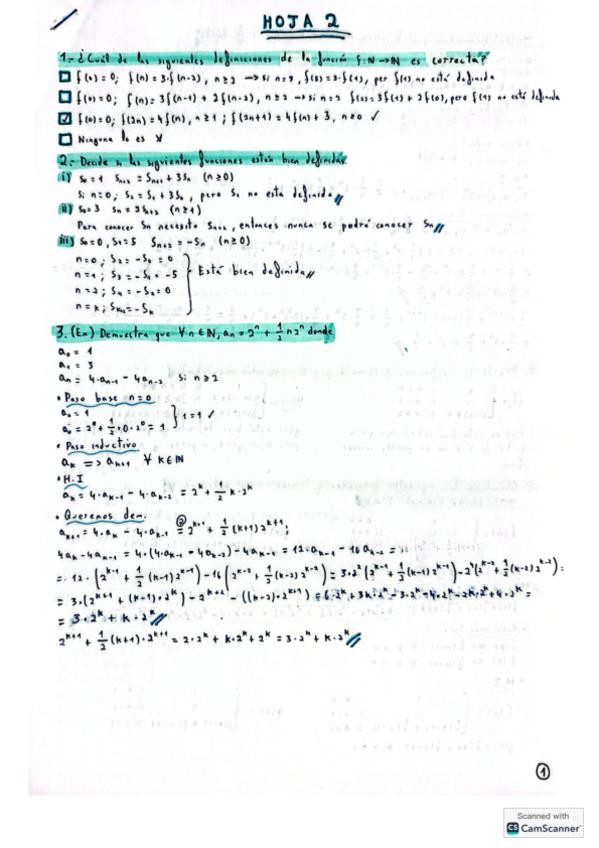 HOJA 2
1.- ¿Cuál de las siguientes definiciones de la función f: N → N es correcta?
☐ f(0)=0; f(n)=3·f(n-2), n≥2 → si n=3, f(3)=3·f(1), pero f(1) no está definida
☐ f(0)=0; f(n)=3f(n-1)+2f(n-2), n≥2 → si n=2 f(2)=3f(1)+2f(0), pero f(1) no está definida
☑ f(0)=0; f(2n)=4f(n), n≥1; f(2n+1)=4f(n)+3, n≥0 ✓
☐ Ninguna lo es
2.- Decide si las siguientes funciones están bien definidas.
i) S₀=1 Sₙ₊₂=Sₙ₊₁+3Sₙ (n≥0)
Si n=0; S₂=S₁+3S₀, pero S₁ no está definida
ii) S₀=3 Sₙ=2Sₙ₊₂ (n≥1)
Para conocer Sₙ necesito Sₙ₊₂, entonces nunca se podrá conocer Sₙ
iii) S₀=0, S₁=5 Sₙ₊₂=-Sₙ (n≥0)
n=0; S₂=-S₀=0
n=1; S₃=-S₁=-5 } Está bien definida
n=2; S₄=-S₂=0
n=k; Sₖ₊₂=-Sₖ
3. (Ex) Demuestra que ∀n∈N, aₙ=2ⁿ+½n2ⁿ donde
a₀=1
a₁=3
aₙ=4·aₙ₋₁-4aₙ₋₂ si n≥2
• Paso base n=0
a₀=1
a₀=2⁰+½·0·2⁰=1 } 1=1 ✓
• Paso inductivo
aₖ ⟹ aₖ₊₁ ∀k∈N
• H.I
aₖ=4·aₖ₋₁-4·aₖ₋₂=2ᵏ+½k·2ᵏ
• Queremos dem:
aₖ₊₁=4·aₖ-4·aₖ₋₁=2ᵏ⁺¹+½(k+1)2ᵏ⁺¹;
4aₖ-4aₖ₋₁=4·(4·aₖ₋₁-4aₖ₋₂)-4aₖ₋₁=12·aₖ₋₁-16aₖ₋₂=
=12·(2ᵏ⁻¹+½(k-1)2ᵏ⁻¹)-16(2ᵏ⁻²+½(k-2)2ᵏ⁻²)=3·2²(2ᵏ⁻¹+½(k-1)2ᵏ⁻¹)-2⁴(2ᵏ⁻²+½(k-2)2ᵏ⁻²)=
=3·(2ᵏ⁺¹+(k-1)·2ᵏ)-2ᵏ⁺²-((k-2)·2ᵏ⁺¹)=6·2ᵏ+3k·2ᵏ-3·2ᵏ-4·2ᵏ-2k·2ᵏ+4·2ᵏ=
=3·2ᵏ+k·2ᵏ
2ᵏ⁺¹+½(k+1)·2ᵏ⁺¹=2·2ᵏ+k·2ᵏ+2ᵏ=3·2ᵏ+k·2ᵏ
1
Scanned with
CS CamScanner